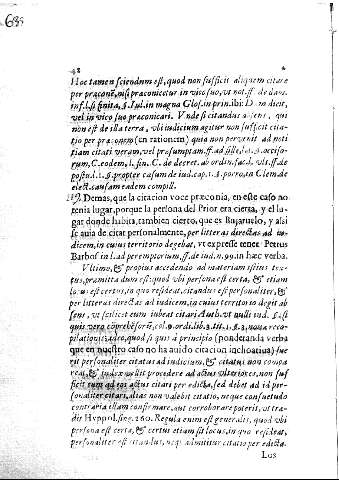 689
48
Hoc tamen sciendum est, quod non sufficit aliquem citare
per præconẽ, nisi præconicetur in vico suo, vt not. ff. de dam.
inf. l. si finita, §. Iul. in magna Glos. in prin. ibi: Domi dicit,
vel in vico suo præconicari. Vnde si citandus absens, qui
non est de illa terra, vbi iudicium agitur non sufficit cita-
tio per præconem (en rationem) quia non pervenit ad noti
tiam citati veram, vel præsumptam. ff. ad
rum, C. eodem, l. fin. C. de decret. ab ordin. fac. d. vlt. ff. de
postul. l. 1. §. propter casum de iud. cap. 1. §. porro, in Clem de
elect. causam eadem compill.
119. Demas, que la citacion voce præconia, en este caso no
tenia lugar, porque la persona del Prior era cierta, y el lu-
gar donde habia, tambien cierto, que es Bujaruelo, y alsi
se auia de citar personalmente, per litteras directas ad iu-
dicem, in cuius territorio degebat, vt expresse tenet Petrus
Barbos. in l. ad peremptorium, ff. de iud. n. 99. in hæc verba.
Vltimo, & propius accedendo ad materiam istius tex-
tus, præmitta dum est: quod vbi persona est certa, & etiam
locus est certus, in quo residet, citandus est personaliter, &
per litteras directas ad iudicem, in cuius territorio degit ab
sens, vt scilicet eum iubeat citari Auth. vt nulli iud. §. Et si
quis vero comprehẽsorũ, col. 9. ordi. lib. 3. tit. 1. §. 3. nova reco-
pilationis: adeo, quod si quis à principio (ponderanda verba
que en nuestro caso no ha auido citacion inchoatiua) fue
rit personaliter citatus ad iudicium, & citatus non compa
reat, & iudex velit procedere ad actus vlteriores, non suf
ficit eum ad eos actus citari per edicta, sed debet ad id per-
sonaliter citari, alias non valebit citatio, neque consuetudo
contraria illam confirmare, aut corroborare poterit, vt tra-
dit Hyppol. sing. 260. Regula enim est generalis, quod vbi
persona est certa, & certus etiam est locus, in quo resideat,
personaliter est citandus, nec admittitur citatio per edicta.
Los